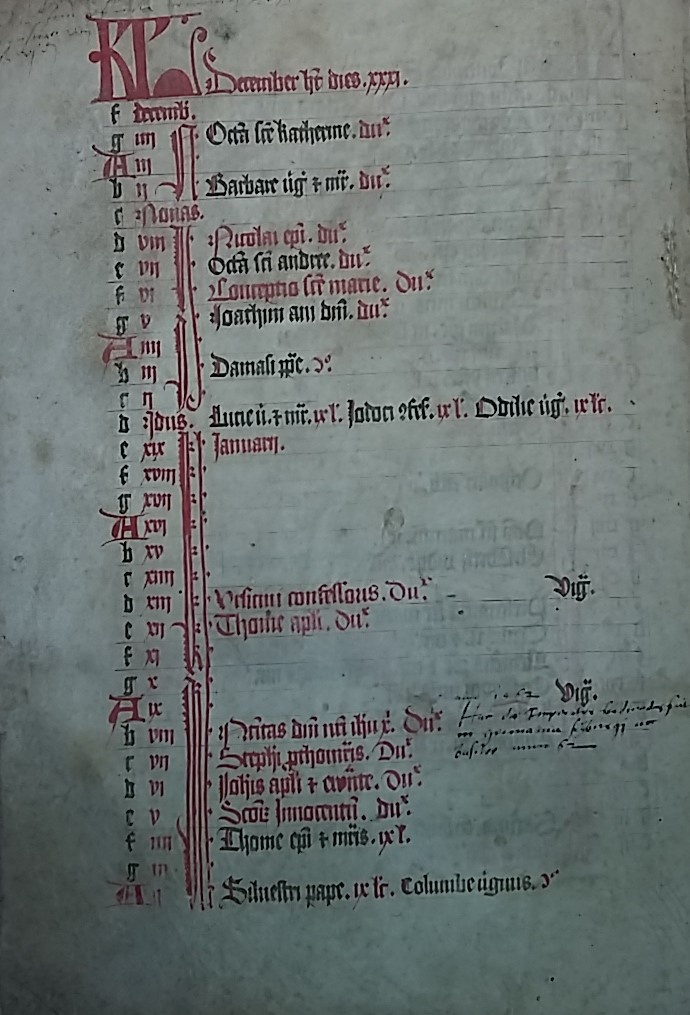 KL December ht dies. xxxi.
f decemb.
g iiii Octa sce katherine. du.
A iii
b ii Barbare uig. & mr. du.
c Nonas.
d viii Nicolai epi. du.
e vii Octa sci andree. du.
f vi Conceptio sce marie. Du.
g v Joachim aui dni. du.
A iiii
b iii Damasi ppe.
c ii
d Idus. Lucie u. & mr. ix l. Jodoci ꝯfes. ix l. Odilie uig. ix lc.
e xix Januarij.
f xviii
g xvii
A xvi
b xv
c xiiii
d xiii Vrsicini confessoris. Du. Vig.
e xii Thome apli. Du.
f xi
g x Vig.
A ix
b viii Natitas dni nri ihu x. Du.
c vii Stephi pthomris. Du.
d vi Johis apli & ewnte. Du.
e v Scor Innocentu. du.
f iiii Thome epi & mris. ix l.
g iii
A ii Siluestri pape. ix lc. Columbe uiginis.